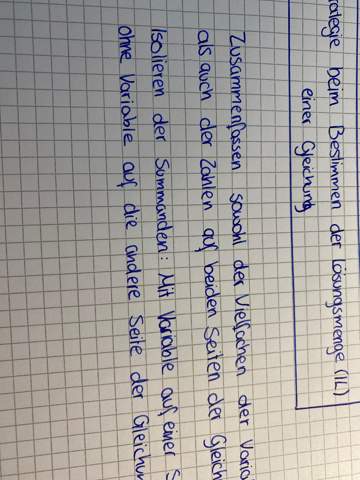 beim Bestimmen der Lösungsmenge (IL)
einer Gleichung
Zusammenfassen sowohl der Vielfachen der
als auch der Zahlen auf beiden Seiten der
Isolieren der Summanden: Mit Variable auf einer
ohne Variable auf die andere Seite der